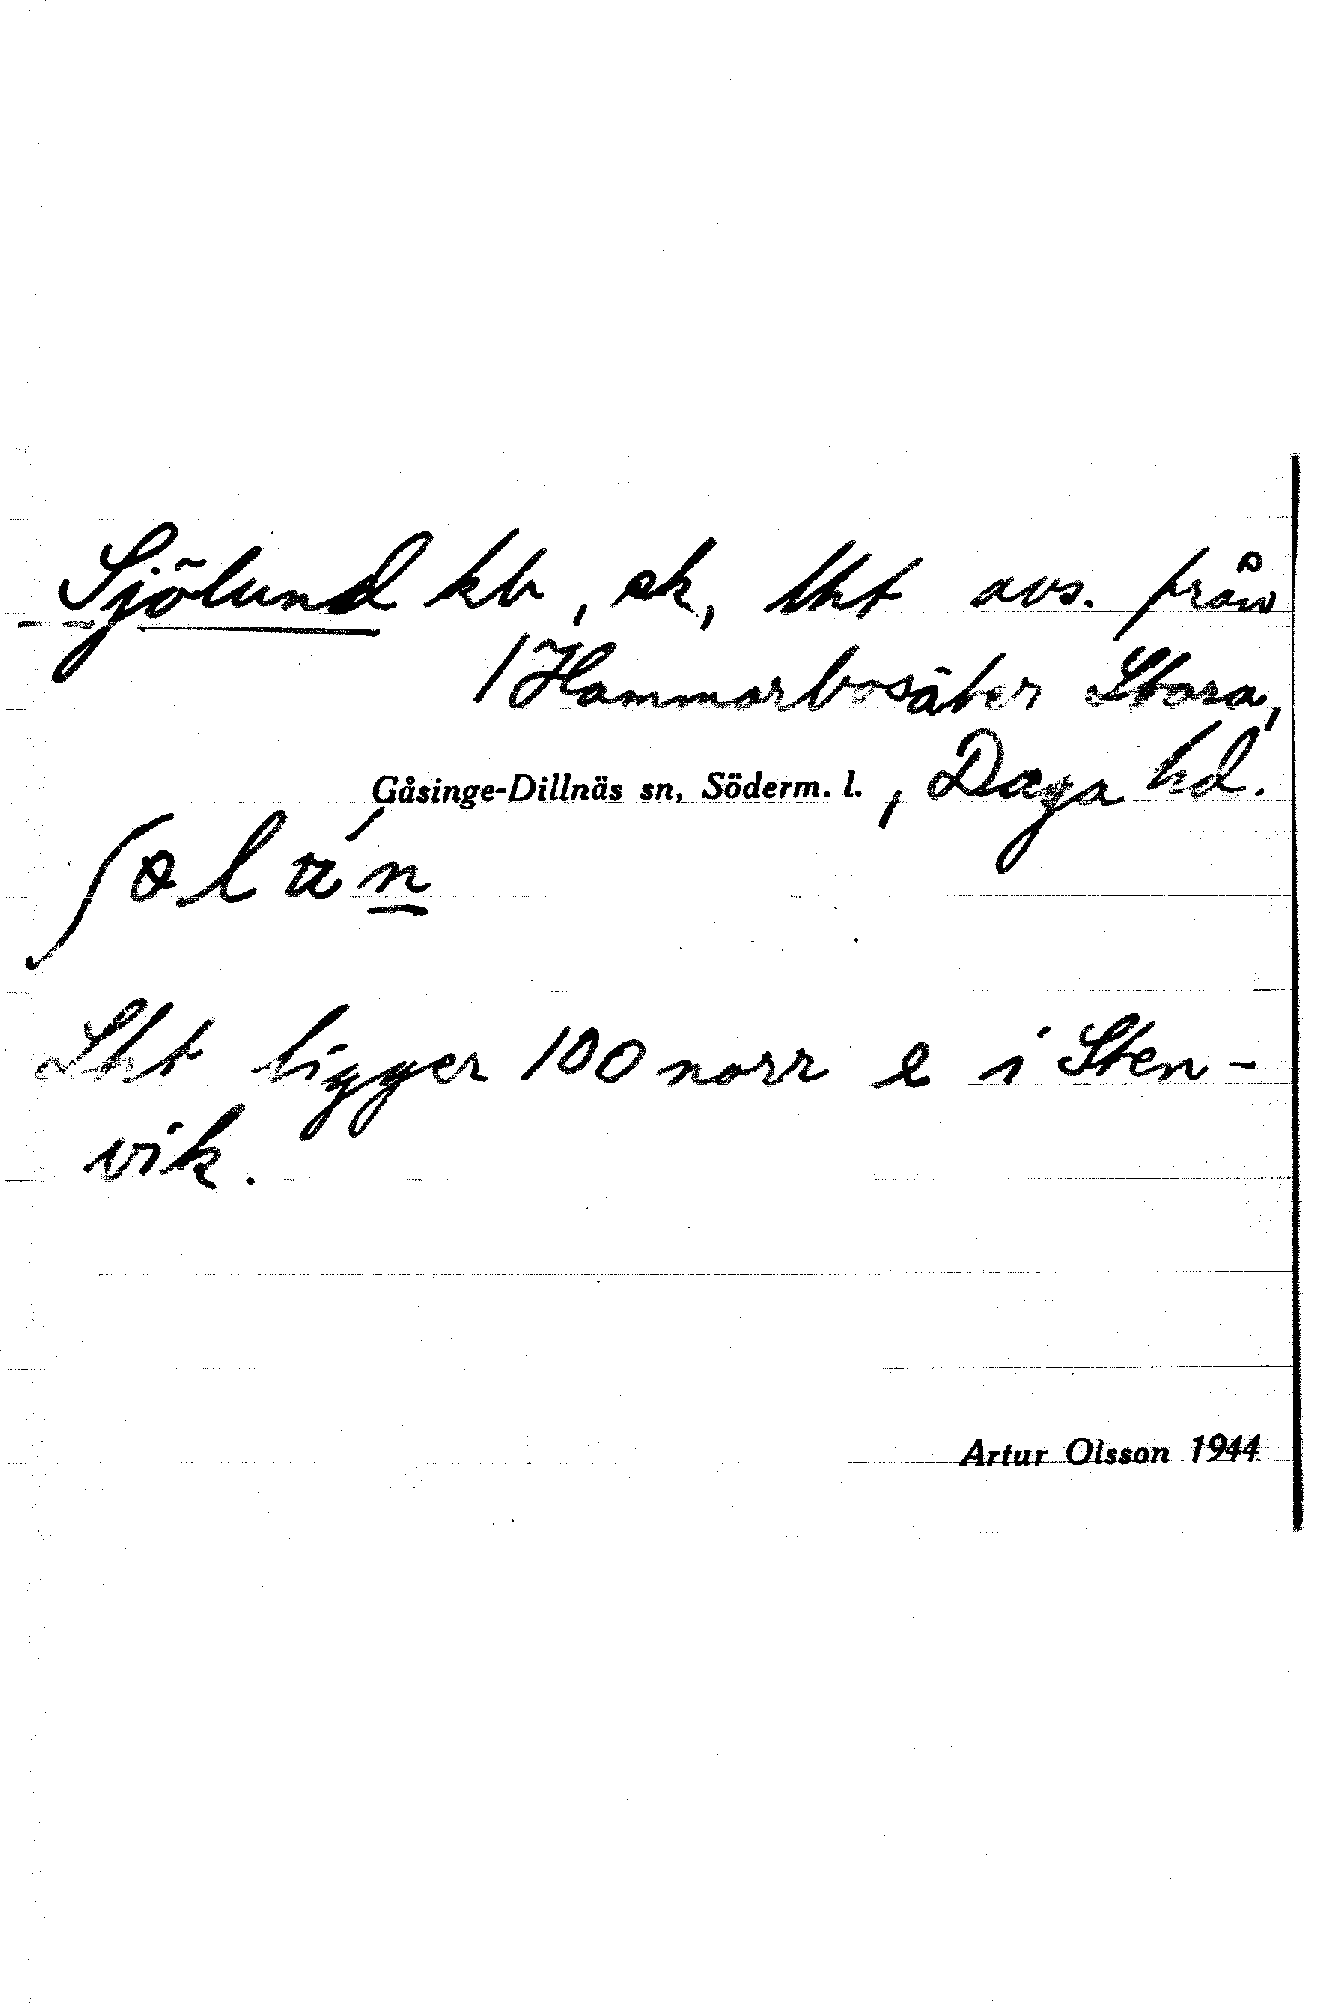 Sjölund kb, ek, lht avs. från
/Hammarbosäter Stora,
Gåsinge-Dillnäs sn, Söderm. l., Daga hd.
Lht ligger 100 norr e i Sten-
vik.
Artur Olsson 1944